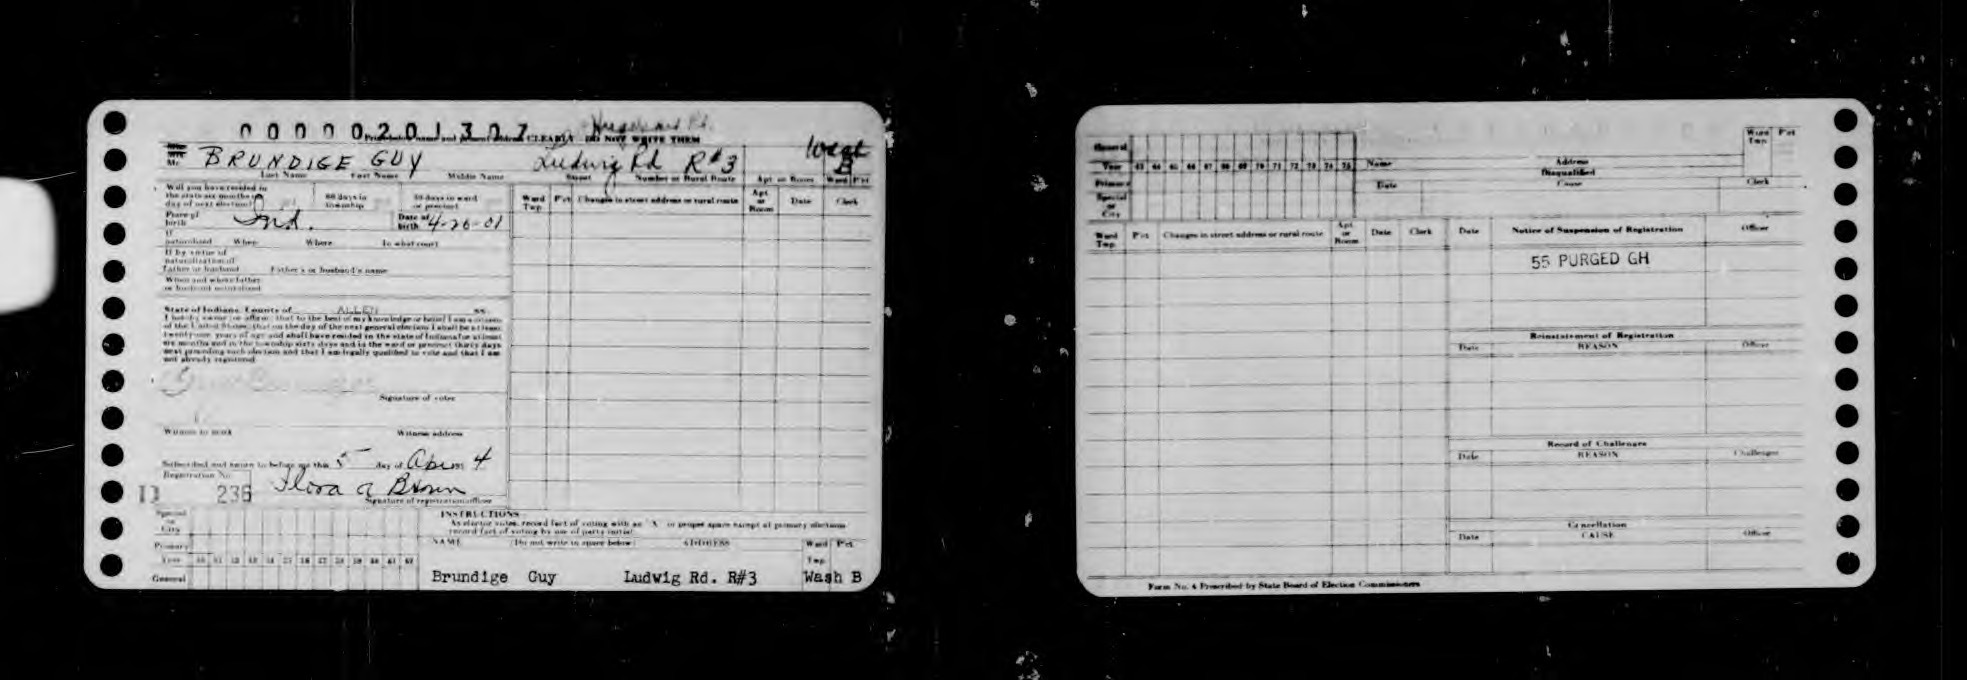 0000201307
CLEARLY DO NOT WRITE THEM
Mr. BRUNDIGE GUY Ludwig Rd R#3 Wash B
Last Name First Name Middle Name Street Number or Rural Route Apt. or Room Ward Pct
Will you have resided in
the state six months on
day of next election?
60 days in
township
30 days in ward
or precinct
Place of
birth Ind.
Date of
birth 4-26-01
If
naturalized When Where In what court
If by virtue of
naturalization of
Father or husband Father's or husband's name
When and where father
or husband naturalized
Ward
Twp. Pct Changes in street address or rural route Apt.
or
Room Date Clerk
State of Indiana, County of ALLEN SS.
I hereby swear (or affirm) that to the best of my knowledge or belief I am a citizen
of the United States; that on the day of the next general election I shall be at least
twenty-one years of age and shall have resided in the state of Indiana for at least
six months and in the township sixty days and in the ward or precinct thirty days
next preceding such election and that I am legally qualified to vote and that I am
not already registered.
Signature of voter
Witness to mark Witness address
Subscribed and sworn to before me this 5 day of 4
Registration No.
11 236 Flora A Brown
Signature of registration officer
INSTRUCTIONS
As elector votes, record fact of voting with an "X" in proper space except at primary elections
record fact of voting by use of party initial
Special
or
City
Primary
Year
General
NAME (Do not write in space below) ADDRESS Ward Pct.
Twp.
Brundige Guy Ludwig Rd. R#3 Wash B
General
Year 63 64 65 66 67 68 69 70 71 72 73 74 75
Primary
Special
or
City
Name Address Ward
Twp. Pct
Disqualified
Date Cause Clerk
Ward
Twp. Pct Changes in street address or rural route Apt.
or
Room Date Clerk
Date Notice of Suspension of Registration Officer
55 PURGED GH
Reinstatement of Registration
Date REASON Officer
Record of Challenges
Date REASON Challenger
Cancellation
Date CAUSE Officer
Form No. 4 Prescribed by State Board of Election Commissioners